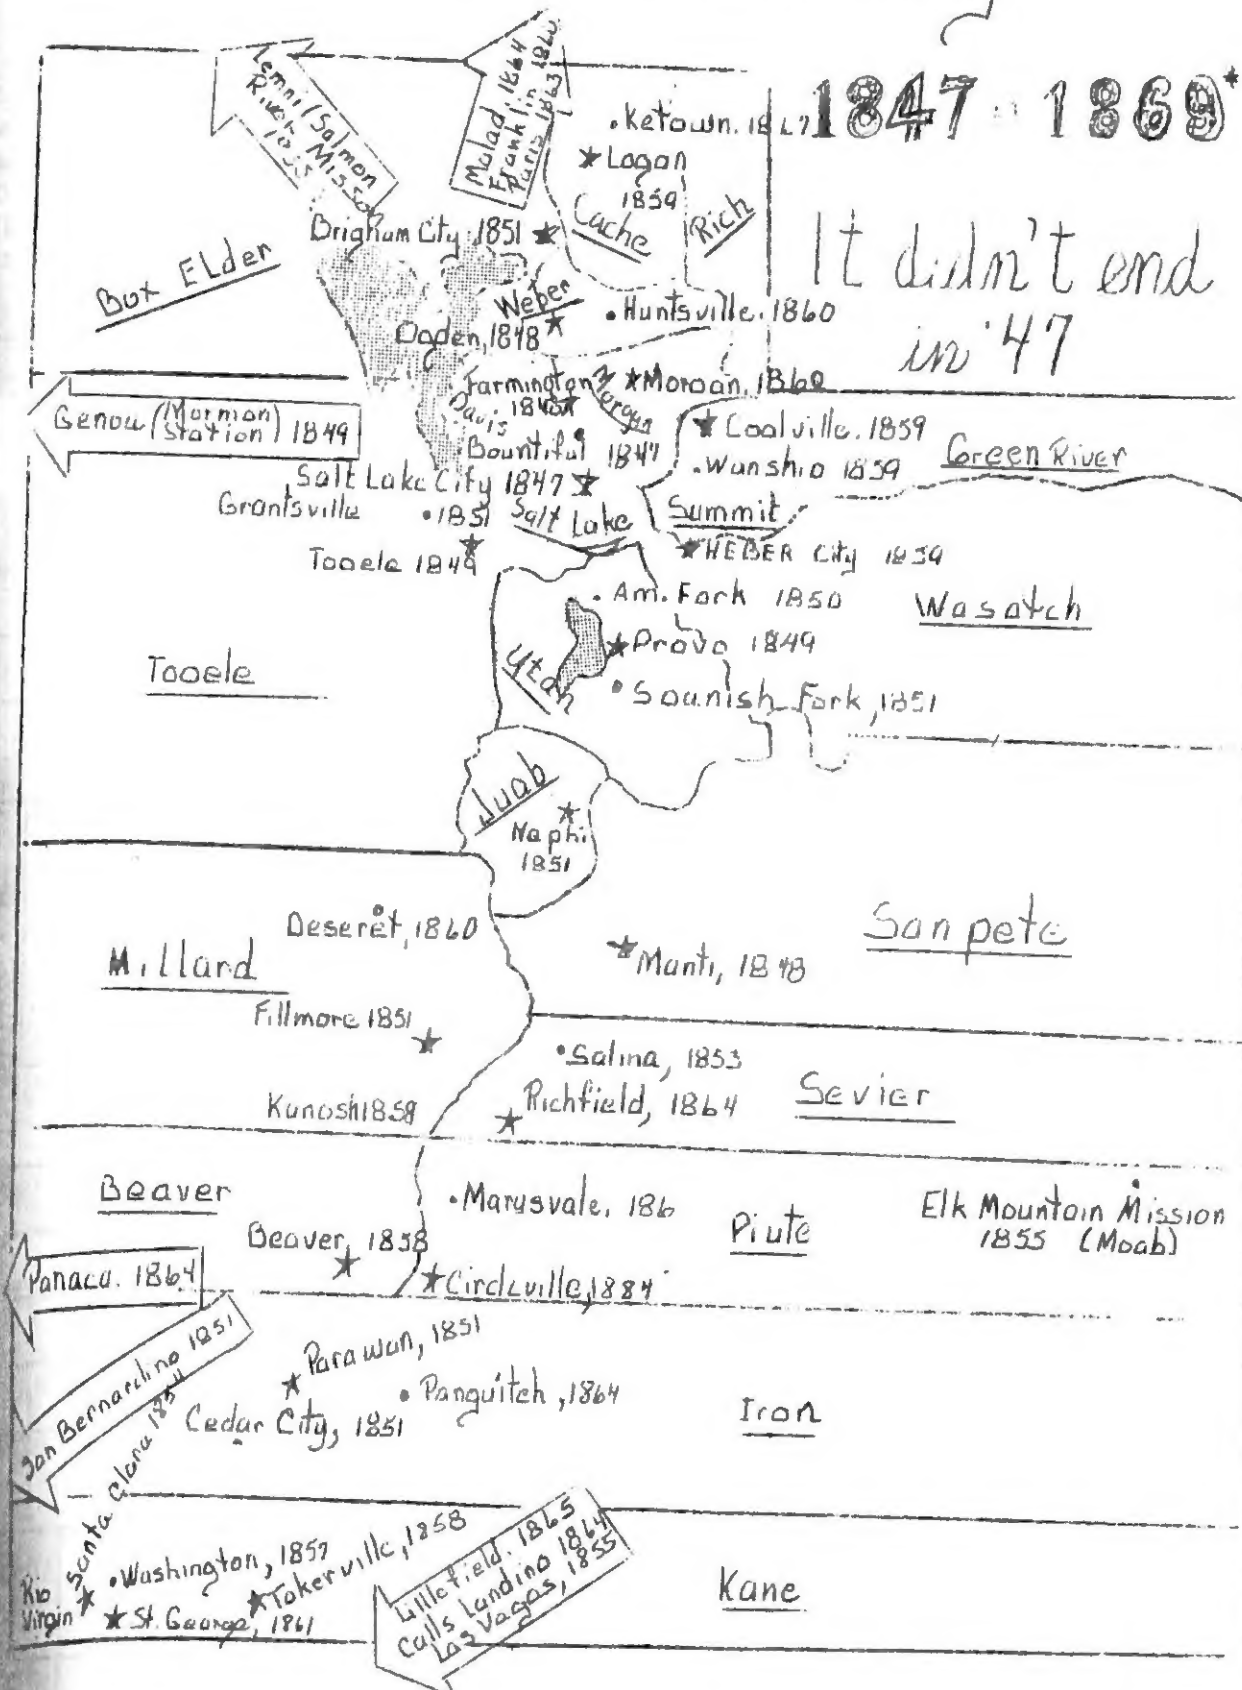 1847 - 1869*
It didn't end
in '47
Lemhi (Salmon
River Mission
1855
Malad 1864
Franklin 1860
Paris 1863
Ketown. 1867
Logan
1859
Cache
Rich
Brigham City 1851
Box Elder
Weber
Huntsville. 1860
Ogden, 1848
Farmington
1848
Davis
Morgan
Morgan, 1860
Genoa (Mormon
Station) 1849
Coalville. 1859
Bountiful 1847
Wanship 1859
Green River
Salt Lake City 1847
Grantsville
1851
Salt Lake
Summit
Tooele 1849
HEBER City 1859
Am. Fork 1850
Wasatch
Provo 1849
Utah
Tooele
Spanish Fork, 1851
Juab
Nephi
1851
Deseret, 1860
Sanpete
Millard
Manti, 1848
Fillmore 1851
Salina, 1853
Richfield, 1864
Sevier
Kanosh 1859
Beaver
Marysvale. 186
Piute
Elk Mountain Mission
1855 (Moab)
Beaver, 1858
Panaca. 1864
Circleville, 1884
San Bernardino 1851
Parawan, 1851
Santa Clara 1854
Panguitch, 1864
Cedar City, 1851
Iron
Rio
Virgin
Washington, 1857
Tokerville, 1858
St. George, 1861
Littlefield. 1865
Calls Landing 1864
Las Vagas, 1855
Kane